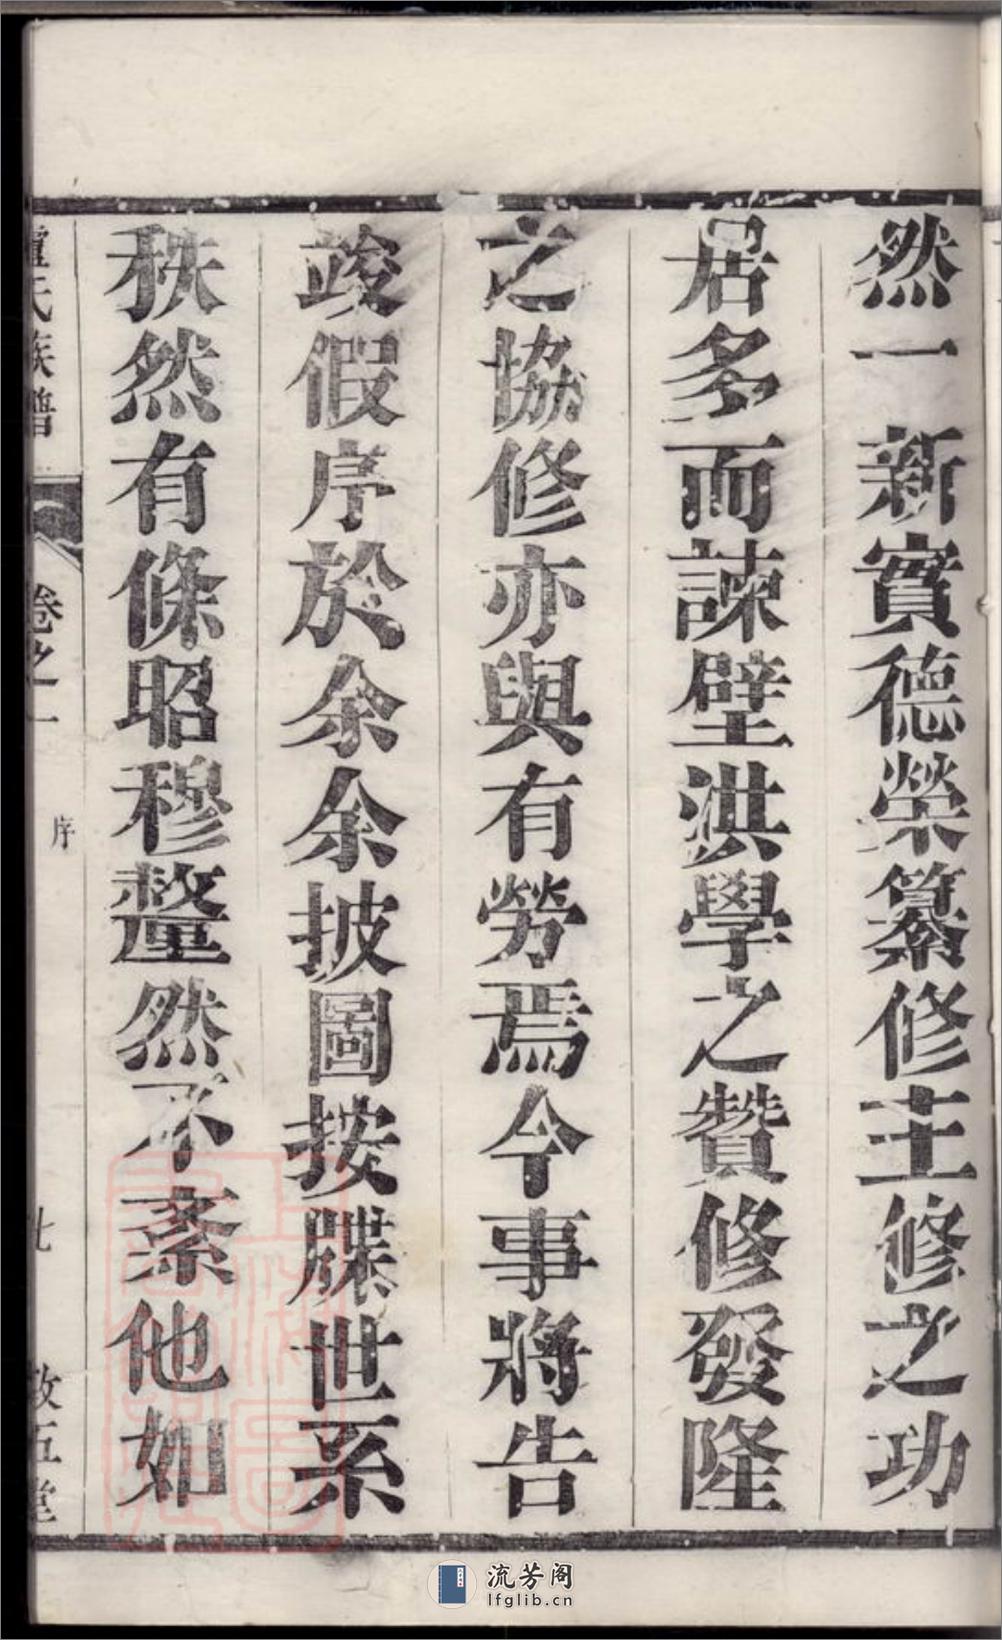 然一新實德榮纂修主修之功
居多而諫璧洪學之贊修發隆
之協修亦與有勞焉今事將告
竣假序於余余披圖按牒世系
秩然有條昭穆釐然不紊他如
氏族譜
卷之一
序
七
敦五堂
流芳阁
lfglib.cn